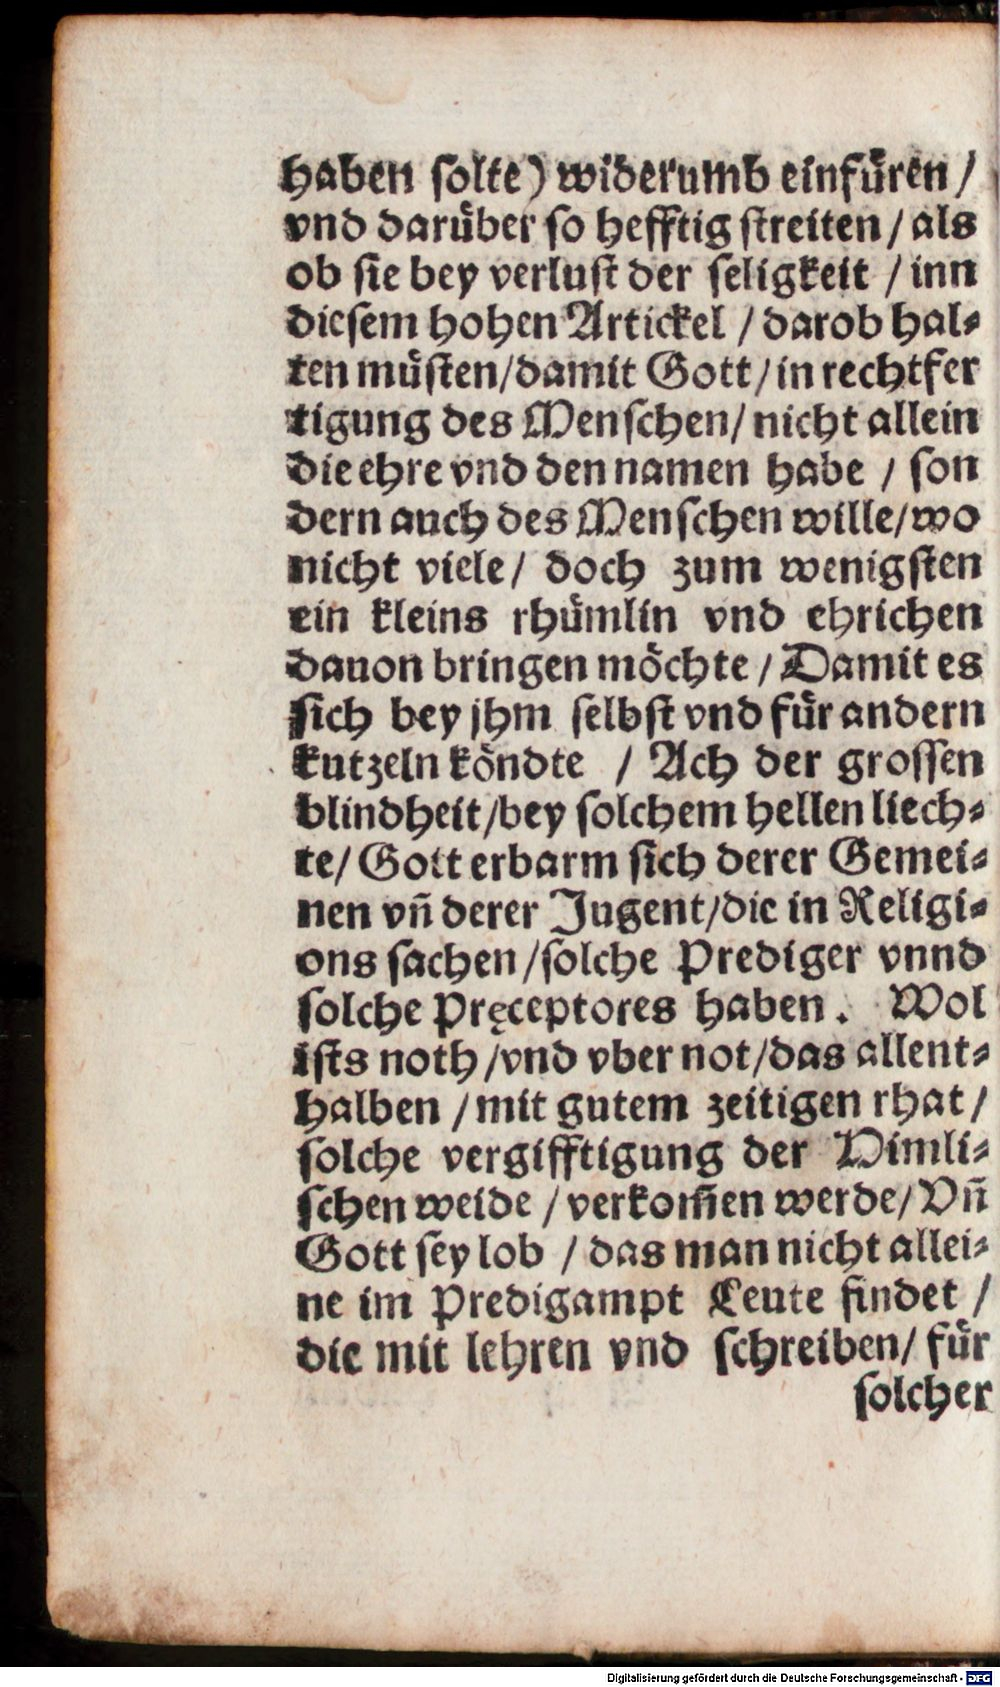 haben ſolte) widerumb einfuͤren /
vnd daruͤber ſo hefftig ſtreiten / als
ob ſie bey verluſt der ſeligkeit / inn
dieſem hohen Artickel / darob hal⸗
ten muͤſten/damit Gott/in rechtfer
tigung des Menſchen/ nicht allein
die ehre vnd den namen habe / ſon
dern auch des Menſchen wille/wo
nicht viele/ doch zum wenigſten
ein kleins rhuͤmlin vnd ehrichen
dauon bringen moͤchte / Damit es
ſich bey jhm ſelbſt vnd fuͤr andern
kutzeln koͤndte / Ach der groſſen
blindheit/bey ſolchem hellen liech⸗
te/ Gott erbarm ſich derer Gemei⸗
nen vñ derer Jugent/die in Religi⸗
ons ſachen/ſolche Prediger vnnd
ſolche Pręceptores haben. Wol
iſts noth/vnd vber not/das allent⸗
halben /mit gutem zeitigen rhat/
ſolche vergifftigung der Himli⸗
ſchen weide / verkom̃en werde/ Vñ
Gott ſey lob / das man nicht allei⸗
ne im Predigampt Leute findet /
die mit lehren vnd ſchreiben/ fuͤr
ſolcher
Digitalisierung gefördert durch die Deutsche Forschungsgemeinschaft - DFG